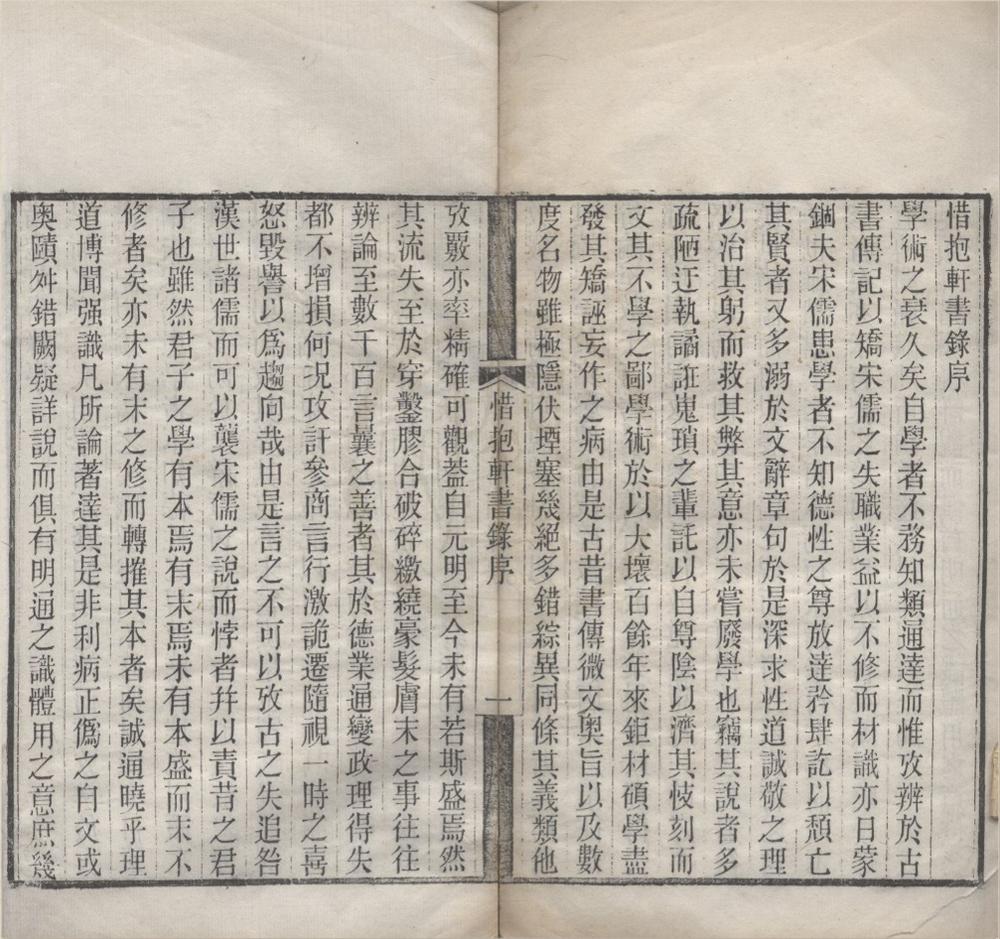 惜抱軒書錄序
學術之衰久矣自學者不務知類通達而惟攷辨於古
書傳記以矯宋儒之失職業益以不修而材識亦日蒙
錮夫宋儒患學者不知德性之尊放達矜肆訖以頹亡
其賢者又多溺於文辭章句於是深求性道誠敬之理
以治其躬而救其弊其意亦未嘗廢學也竊其說者多
疏陋迂執譎誑嵬瑣之輩託以自尊陰以濟其忮刻而
文其不學之鄙學術於以大壞百餘年來鉅材碩學盡
發其矯誣妄作之病由是古昔書傳微文奧旨以及數
度名物雖極隱伏堙塞幾絕多錯綜異同條其義類他
惜抱軒書錄序
一
攷覈亦率精確可觀葢自元明至今未有若斯盛焉然
其流失至於穿鑿膠合破碎繳繞豪髮膚末之事往往
辨論至數千百言曩之善者其於德業通變政理得失
都不增損何況攻訐參商言行激詭遷隨視一時之喜
怒毀譽以爲趨向哉由是言之不可以攷古之失追咎
漢世諸儒而可以襲宋儒之說而悖者幷以責昔之君
子也雖然君子之學有本焉有末焉未有本盛而末不
修者矣亦未有末之修而轉摧其本者矣誠通曉乎理
道博聞强識凡所論著達其是非利病正僞之白文或
奧賾舛錯闕疑詳說而俱有明通之識體用之意庶幾